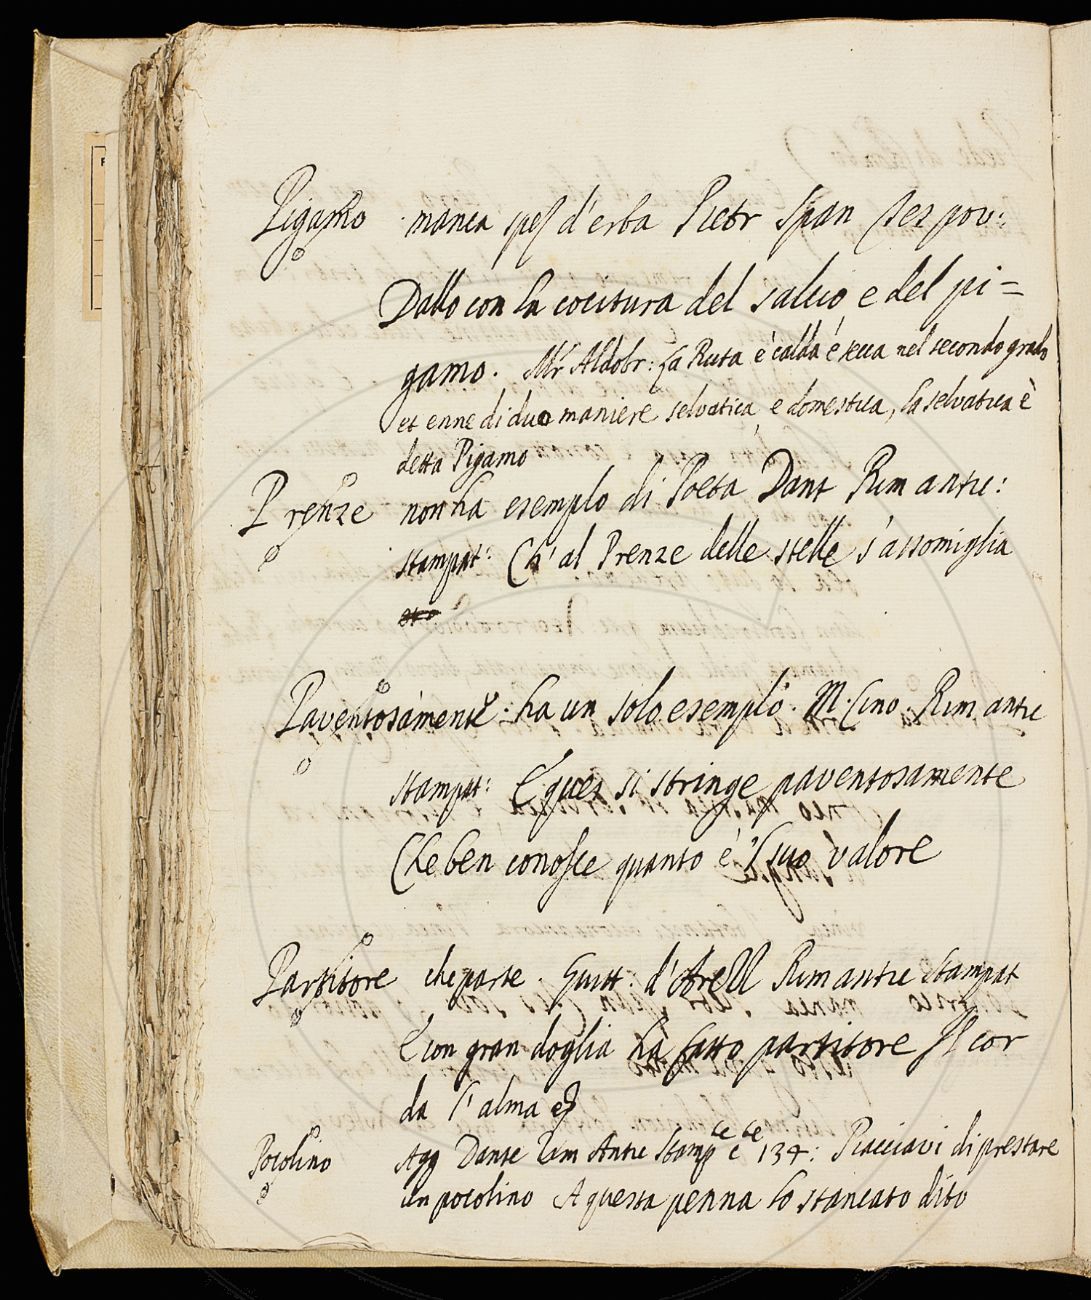 Pigamo manca spez d'erba Pietr Span Tes pov:
Dallo con la cocitura del salcio e del pi=
gamo. Mr Aldobr: la Ruta è calda é secca nel secondo grado
et enne di duo maniere selvatica, e domestica, la selvatica è
detta Pigamo
Prenze non ha esemplo di Poeta Dant Rim antic:
stampat: Ch' al Prenze delle stelle s'assomiglia
Paventosamente. ha un solo esemplo. M. Cino. Rim antic
stampat: E quei si stringe paventosamente
Che ben conosce quanto è 'l suo valore
Partitore che parte. Guitt: d'Arezz Rim antic stampat
E con gran doglia ha fatto partitore Il cor
da l'alma
Pocolino Agg Dante Rim Antic Stamp ce c ce 134: Piacciavi di prestare
un pocolino A questa penna lo stancato dito